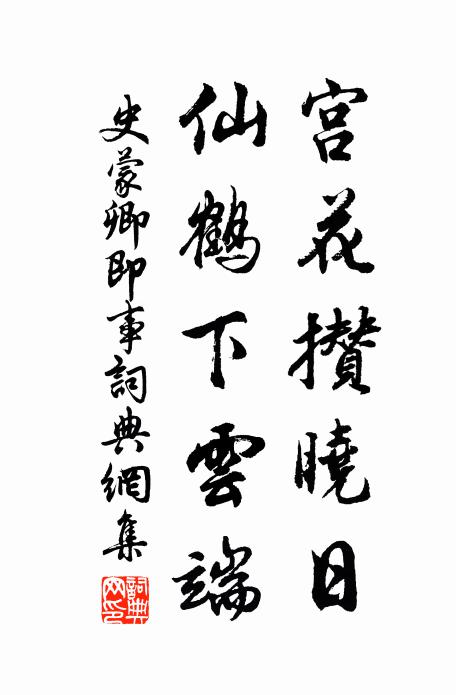 宫花攒曉日
仙鶴下雲端
史蒙卿即事詞典網集
詞典网印